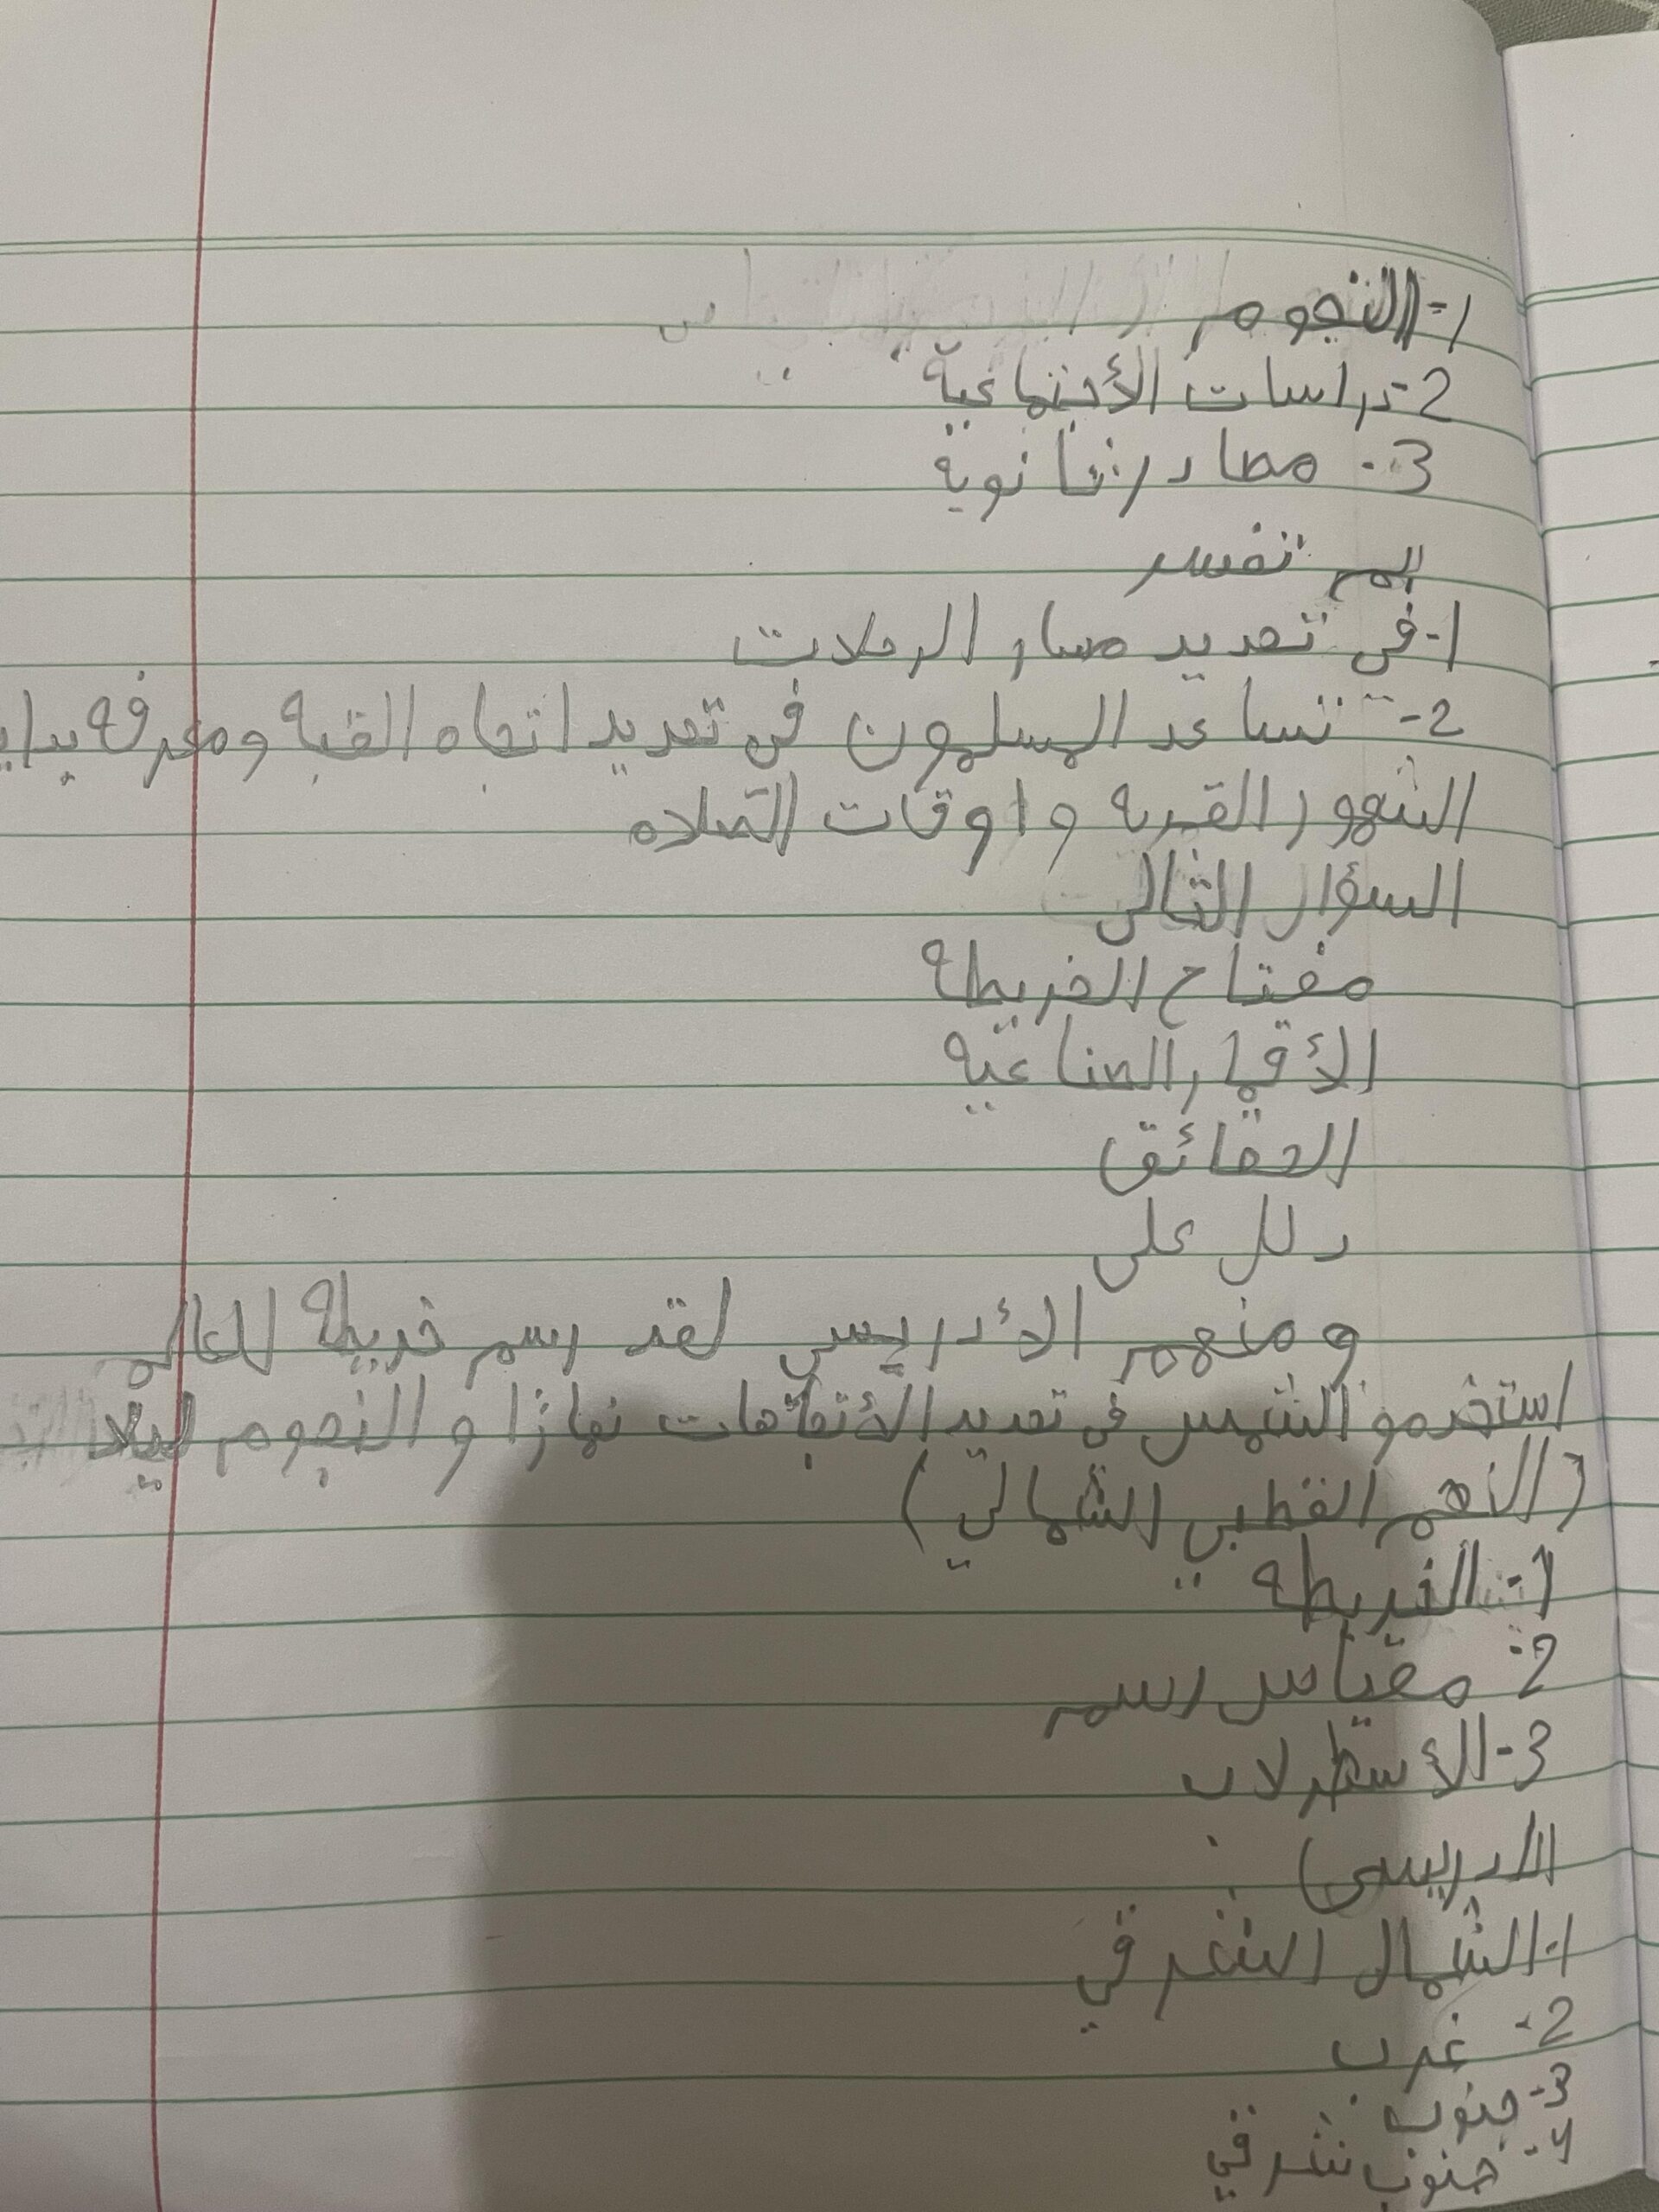 1- النجوم
2- دراسات الأجتماعية
3- مصادر ثانوية
بم تفسر
1- في تحديد مسار الرحلات
2- تساعد المسلمون في تحديد اتجاه القبه ومعرفه بداي
الشهور القمريه و اوقات الصلاه
السؤال الثاني
مفتاح الخريطه
الأقمار الصناعيه
الحقائق
دلل على
ومنهم الأدريسي لقد رسم خريطه للعالم
استخدمو الشمس في تحديد الأتجاهات نهارًا و النجوم ليلا
(النجم القطبي الشمالي)
1- الخريطه
2- مقياس رسم
3- الأسطرلاب
الادريسي)
1- الشمال الشرقي
2- غرب
3- جنوب
4- جنوب شرقي